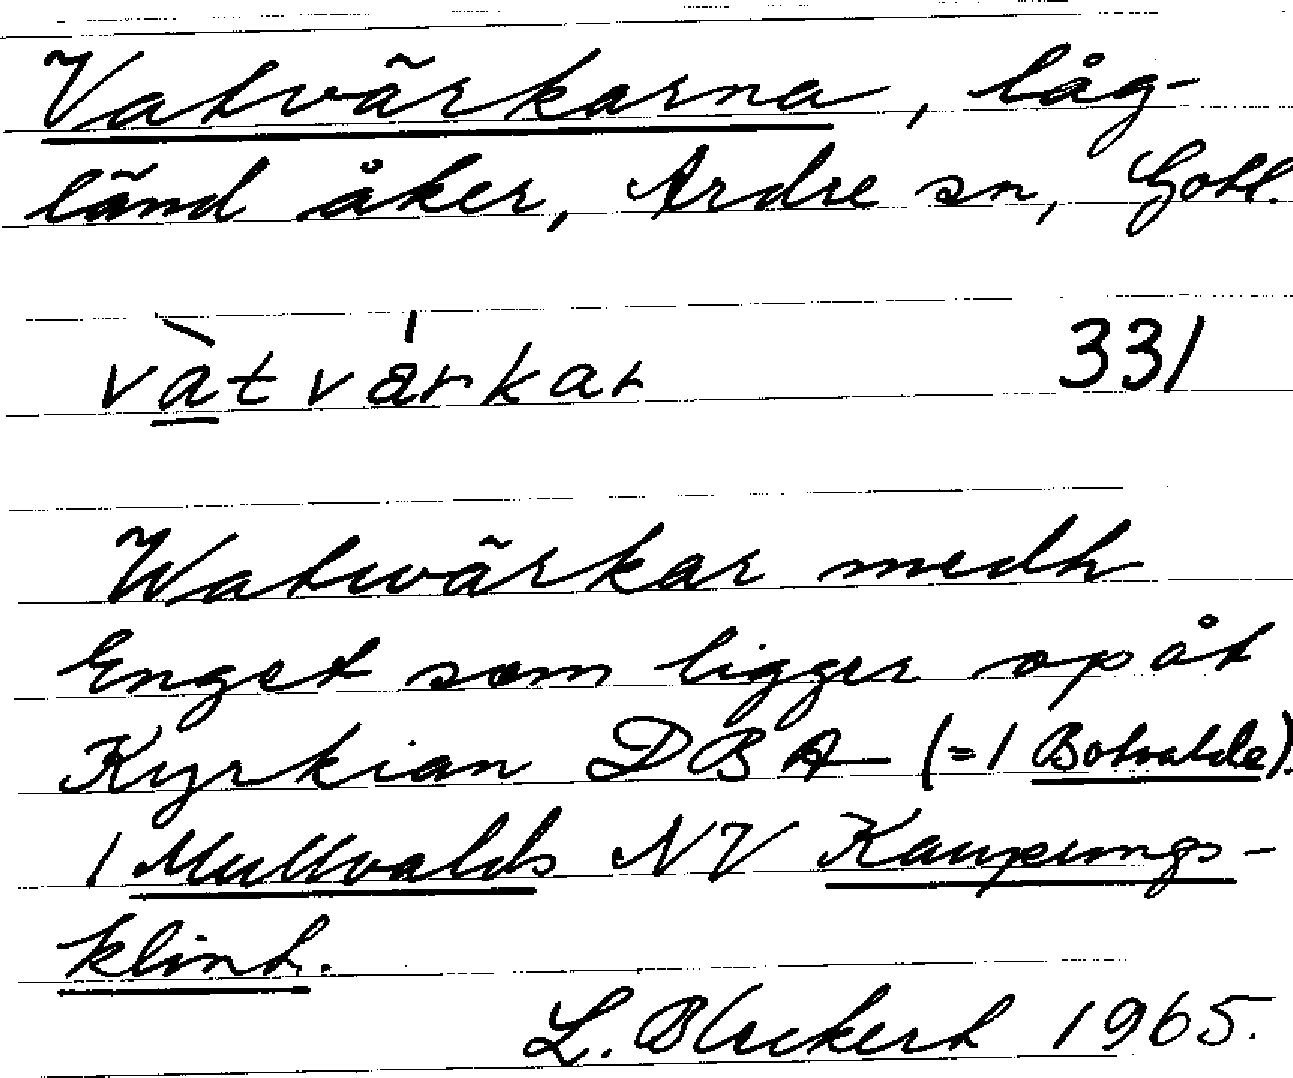 Vatvärkarna, låg-
länd åker, Ardre sn, Gotl.
vàtvärkar 331
Watwärkar medh
Enget som ligger opåt
Kyrkian DBA (=1 Botvalde).
1 Mullvalds NV Kaupungs-
klint.
L. Bleckert 1965.